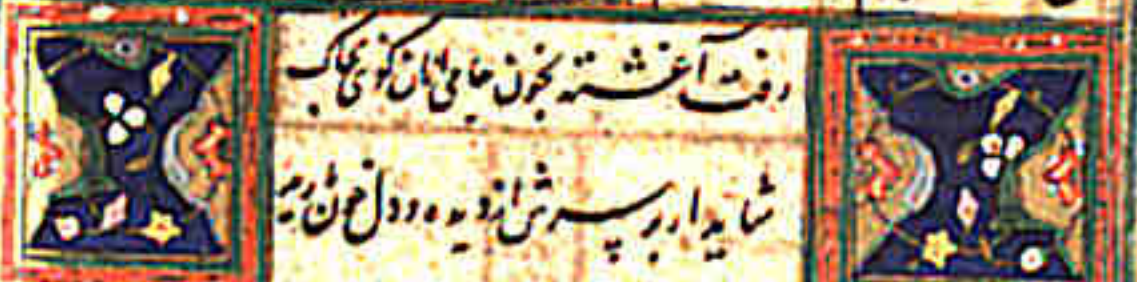 رفت آغشته بخون جامی ازان کوی بخاک
شاید ار بر سرش از دیده و دل خون ریزد